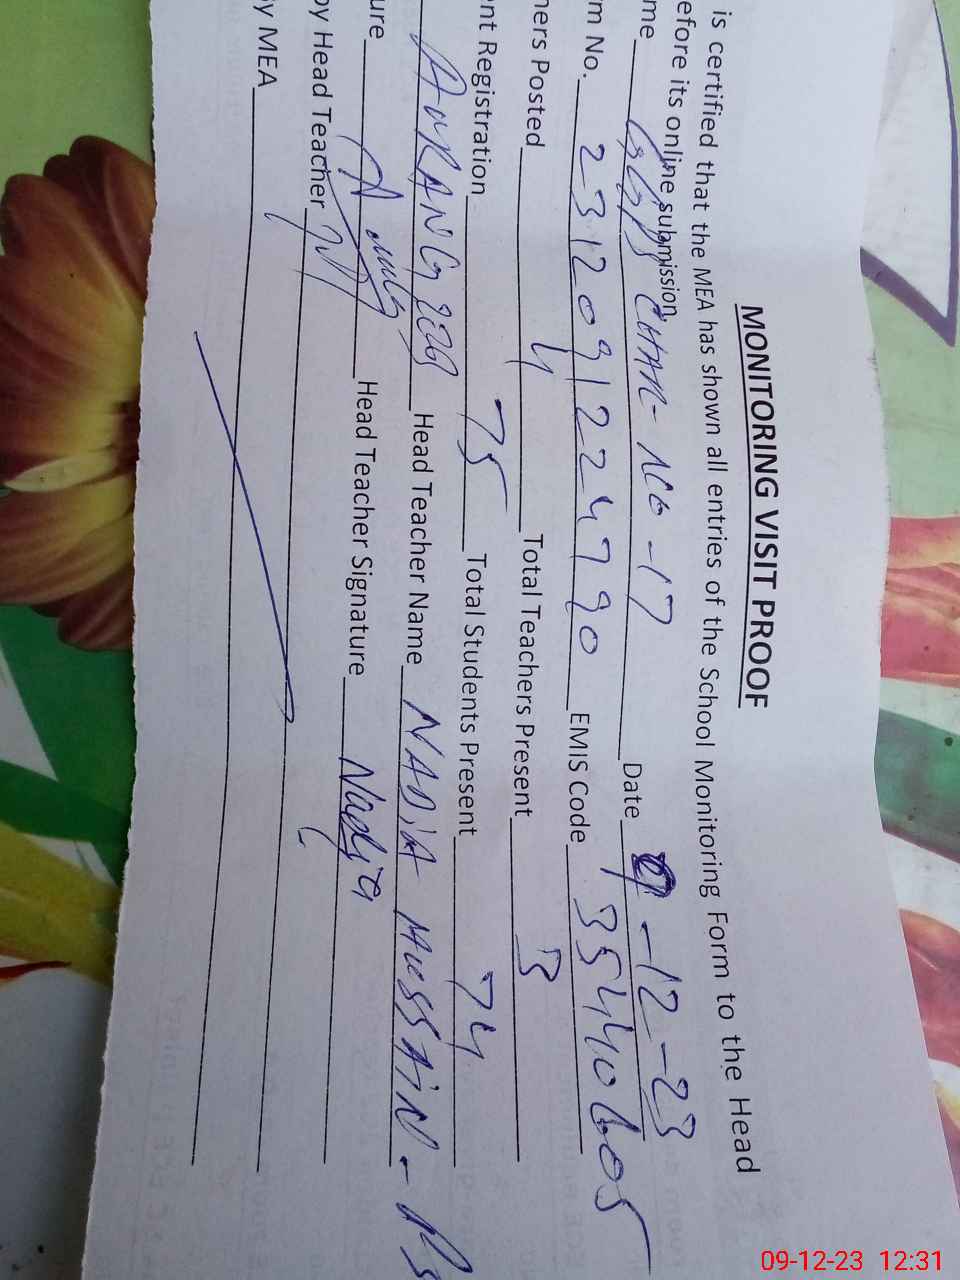 MONITORING VISIT PROOF
is certified that the MEA has shown all entries of the School Monitoring Form to the Head
efore its online submission.
me GGPS CHAK-NO-17 Date 9-12-23
m No. 2312091224790 EMIS Code 35440605
hers Posted 4 Total Teachers Present 3
nt Registration 75 Total Students Present 74
AURANGZEB Head Teacher Name NADIA HUSSAIN-
ure Head Teacher Signature Nadia
by Head Teacher
y MEA
09-12-23 12:31